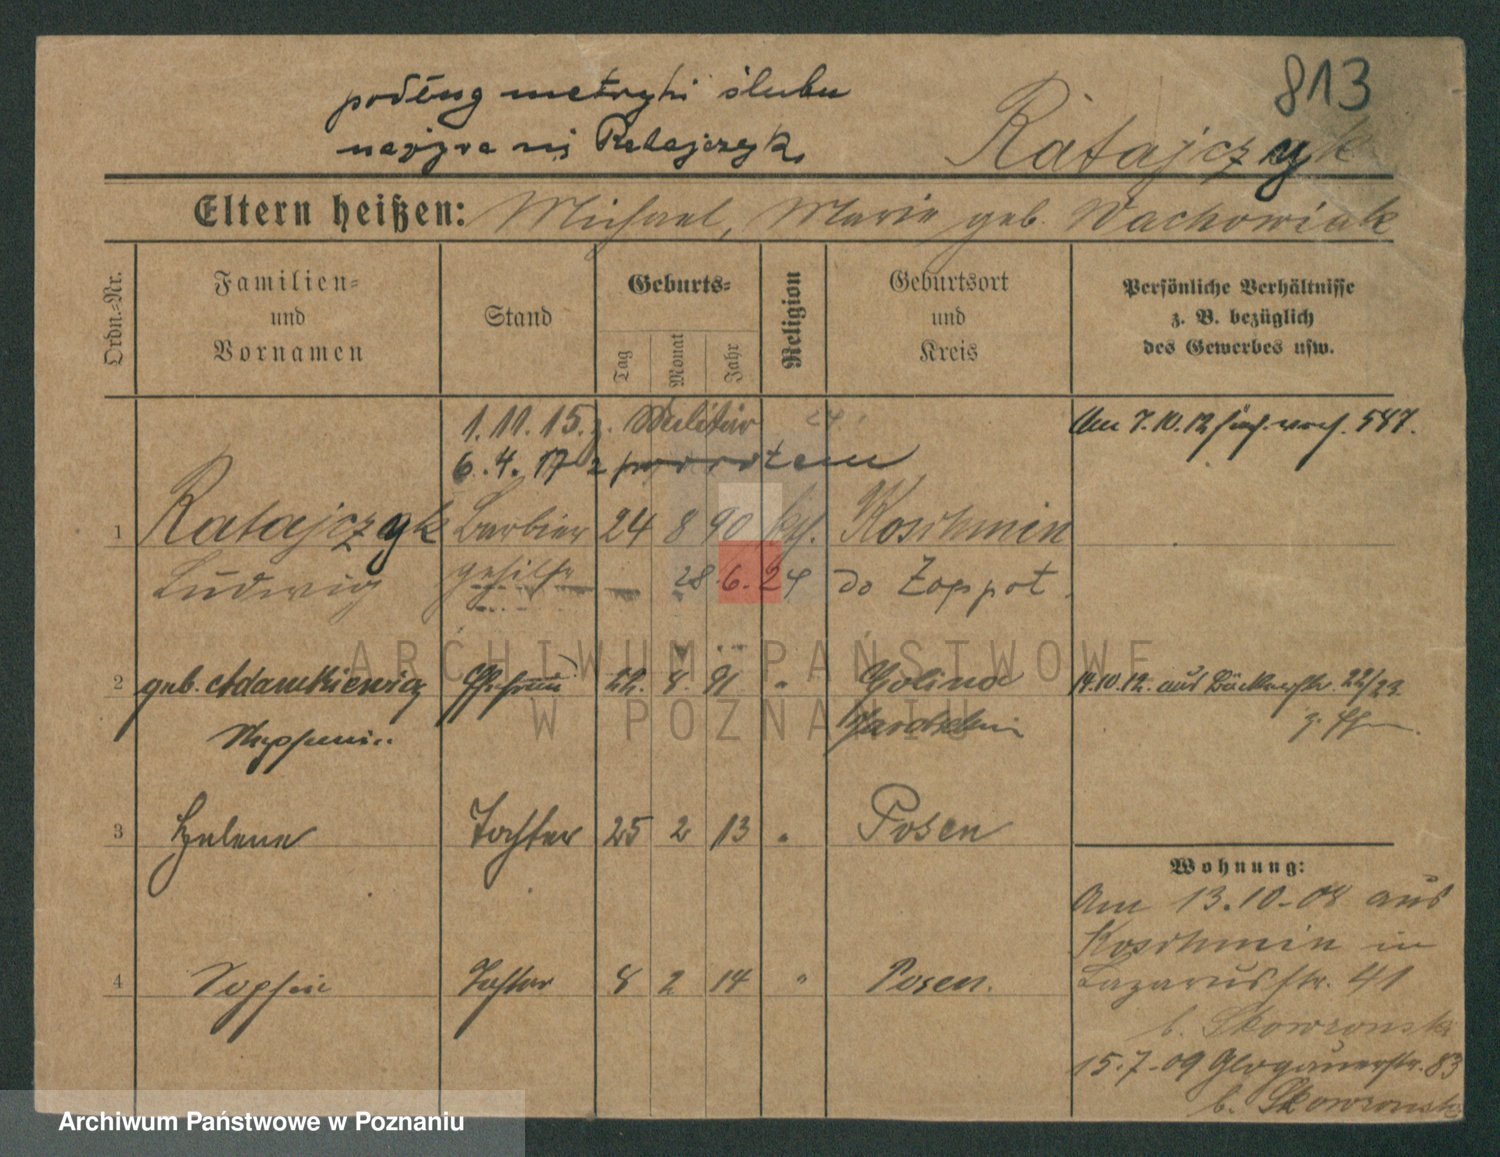 813
podług metryki ślubu
nazywa się Ratajczyk
Ratajczyk
Eltern heißen: Michael, Marie geb. Wachowiak
Ordn.-Nr.
Familien-
und
Vornamen
Stand
Geburts-
Tag
Monat
Jahr
Religion
Geburtsort
und
Kreis
Persönliche Verhältnisse
z. B. bezüglich
des Gewerbes usw.
1.11.15. z. Militär 24.
6.4.17 z powrotem
Am 7.10.12 587.
1 Ratajczyk Barbier 24 8 90 kth. Koschmin
Ludwig gehilfe 28.6.24 do Zoppot.
2 geb. Adamkiewicz Ehefrau 22. 8. 91 " Golina 14.10.12. aus Bäckerstr. 22/23
Jarotschin
3 Helene Tochter 25 2 13 " Posen
4 Sophie Tochter 8 2 14 " Posen.
Wohnung:
Am 13.10-08 aus
Koschmin in
Lazarusstr. 41
b. Skowronski
15.7-09 Glogauerstr. 83
b. Skowronski
ARCHIWUM PAŃSTWOWE
W POZNANIU
Archiwum Państwowe w Poznaniu